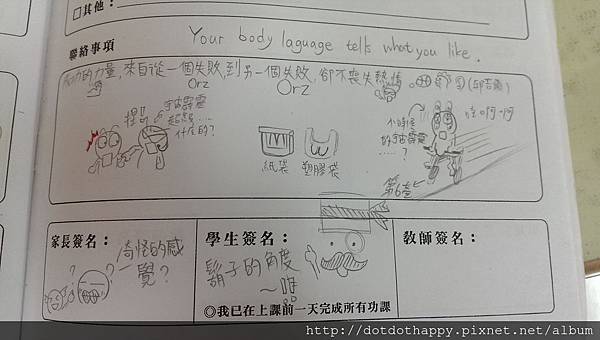 □其他：
聯絡事項
Your body laguage tells what you like.
的力量，來自從一個失敗，到另一個失敗，卻不喪失熱情
Orz Orz
(邱吉爾)
捏!!
宇宙霹靂
超級…
什麼的?
紙袋
塑膠袋
小時候
的宇宙霹靂
……?
哈啊啊
第6套
家長簽名：
奇怪的感覺?
學生簽名：
鬍子的角度
～嗯!!
◎我已在上課前一天完成所有功課
教師簽名：
http://dotdothappy.pixnet.net/album